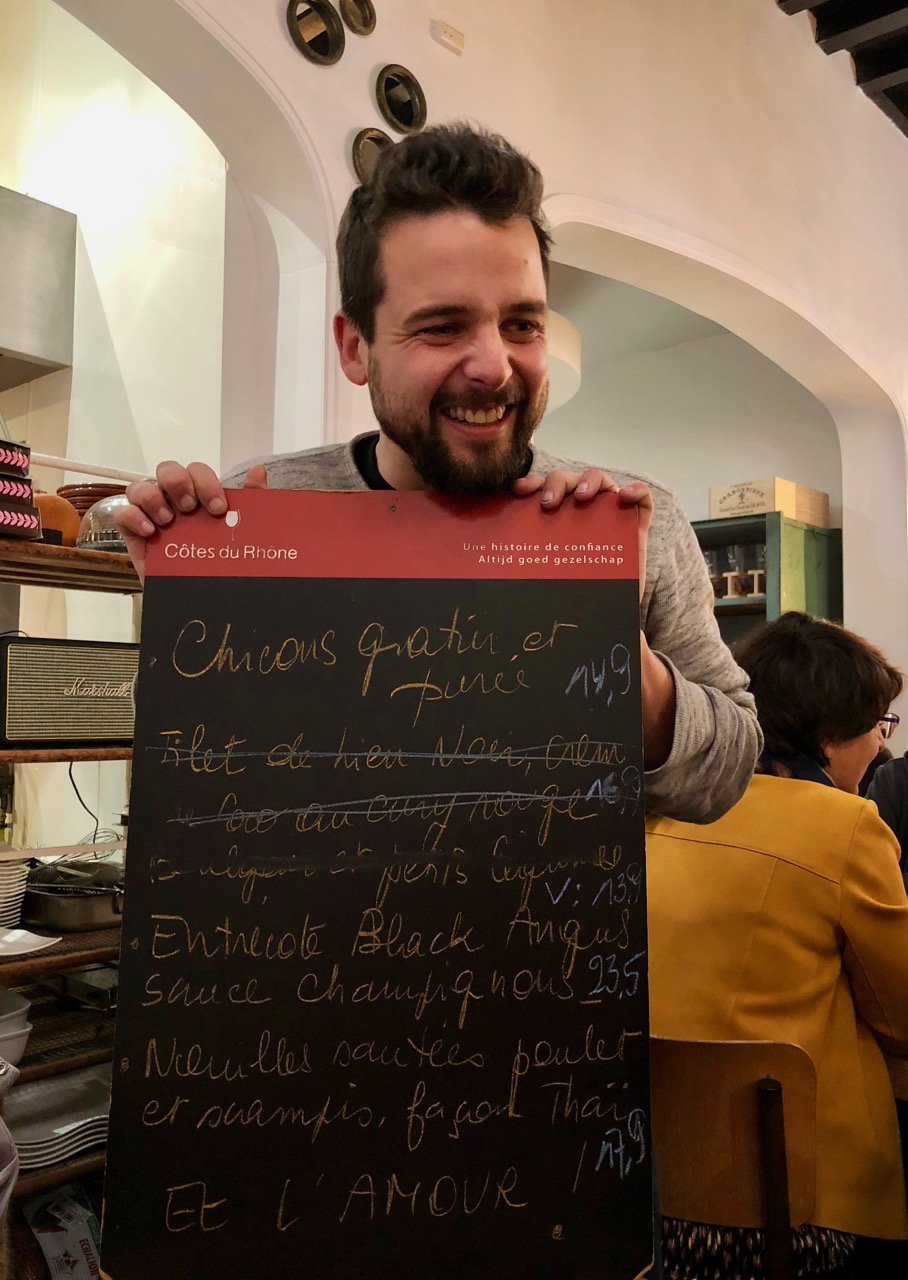 CARBONNIEUX
Côtes du Rhône
Une histoire de confiance
Altijd goed gezelschap
Marshall
Chicons gratin et
purée 14,9
Filet de lieu Noir, crème
coco au curry rouge 16,9
Boulgour et petits légumes
V: 13,9
Entrecote Black Angus
sauce champignons 23,5
Nouilles sautées poulet
et scampis, façon Thaï
17,9
Et L'AMOUR !
ECHALION